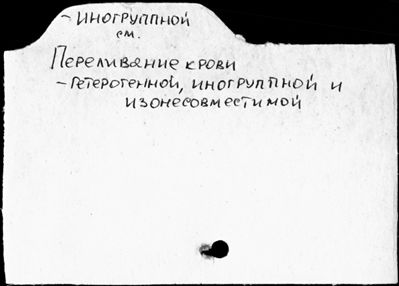 - ИНОГРУППНОЙ
см.
Переливание крови
- Гетерогенной, иногруппной и
изонесовместимой